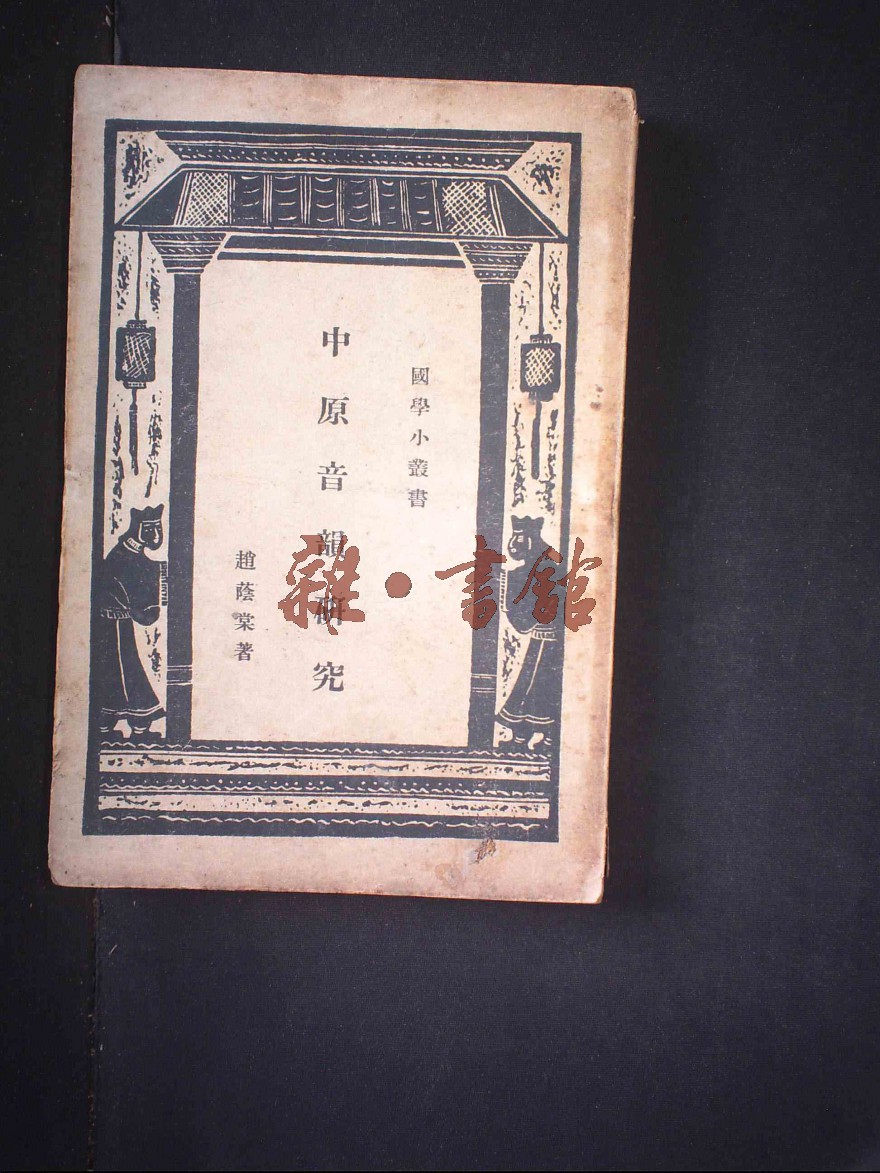 國學小叢書
中原音韻研究
趙蔭棠著
雜·書館